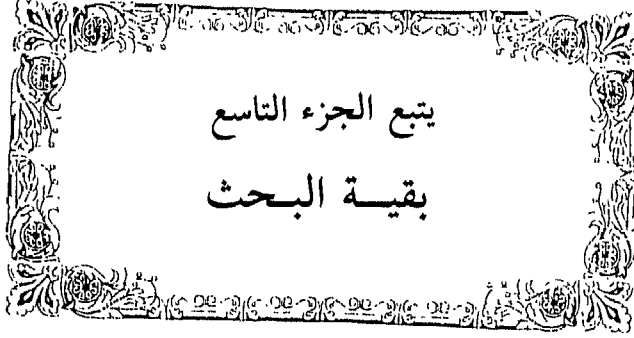 يتبع الجزء التاسع
بقيـــة البـــحث